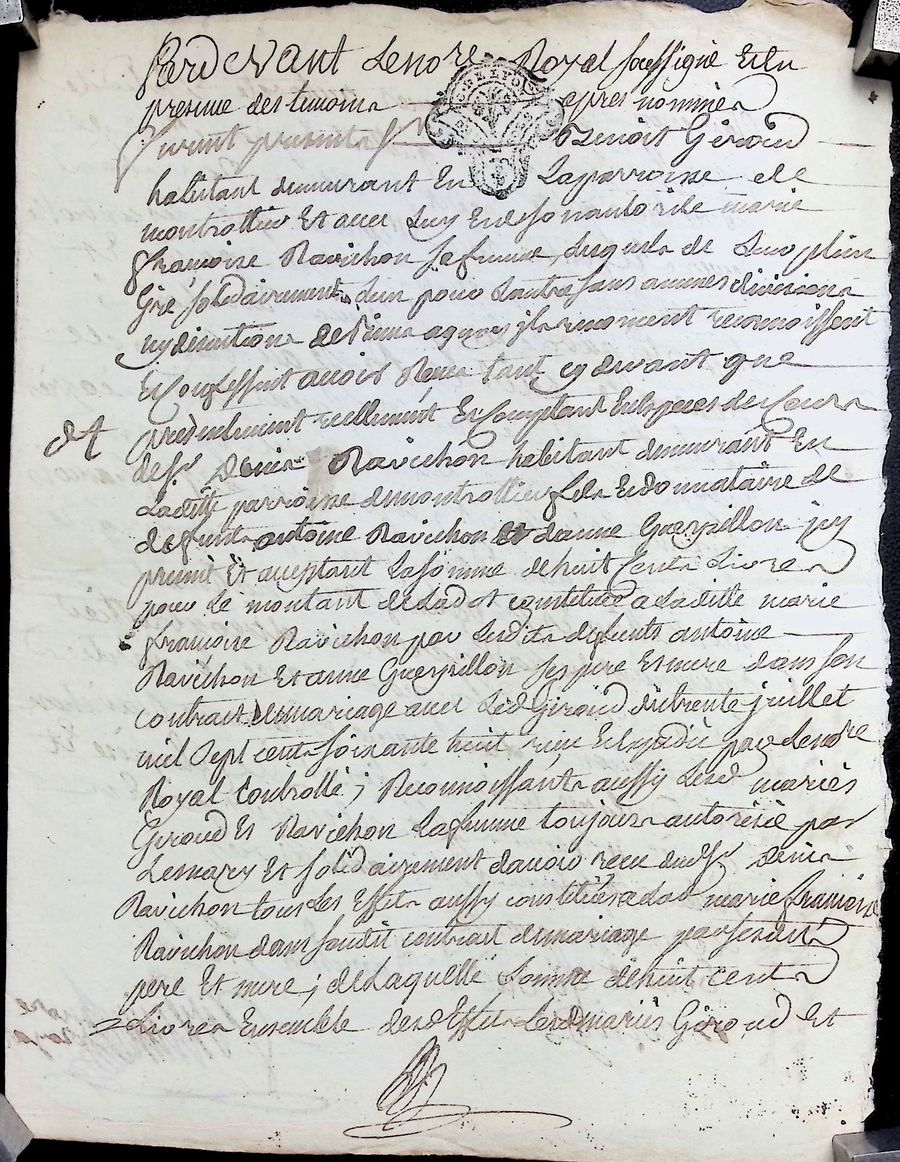 Pardevant Lenore Royal soussigné Et En
presence des temoins apres nommés
furent presents Benoit Giroud
habitant demeurant En Laparroisse de
montrottier Et avec Luy Endesonautorité marie
francoise Ravichon safemme, desquels de Leur plein
Gré solidairement Lun pour Lautre sans aucunes divisions
ny de renoncent reconnoissent
Et Confessent avoir Receu tant cydevant que
presentement reellement Et Comptant En Especes de Cours
de Sr. Denis Ravichon habitant demeurant En
Laditte parroisse demontrottier fils Et donnataire de
defunts antoine Ravichon Et danne Guerpillon icy
present Et acceptant Lasomme dehuit Cents Livres
pour Le montant deLadot constituée a Laditte marie
francoise Ravichon par Lesdits defunts antoine
Ravichon Et anne Guerpillon ses pere Et mere dans son
contract demariage avec Led Giroud dutrente juillet
mil sept cents soixante huit receu Et Expedié par Lenore
Royal Controllé ; Reconnoissants aussy Lesd mariés
Giroud Et Ravichon Lafemme toujours autorisée par
Lemary Et solidairement davoir receu dudSr Denis
Ravichon tous Les Effets aussy constitués adot marie francoise
Ravichon dans sondit contract demariage par sesdits
pere Et mere ; deLaquelle somme dehuit cents
Livres Ensemble desd Effets Lesdmariés Giroud Et